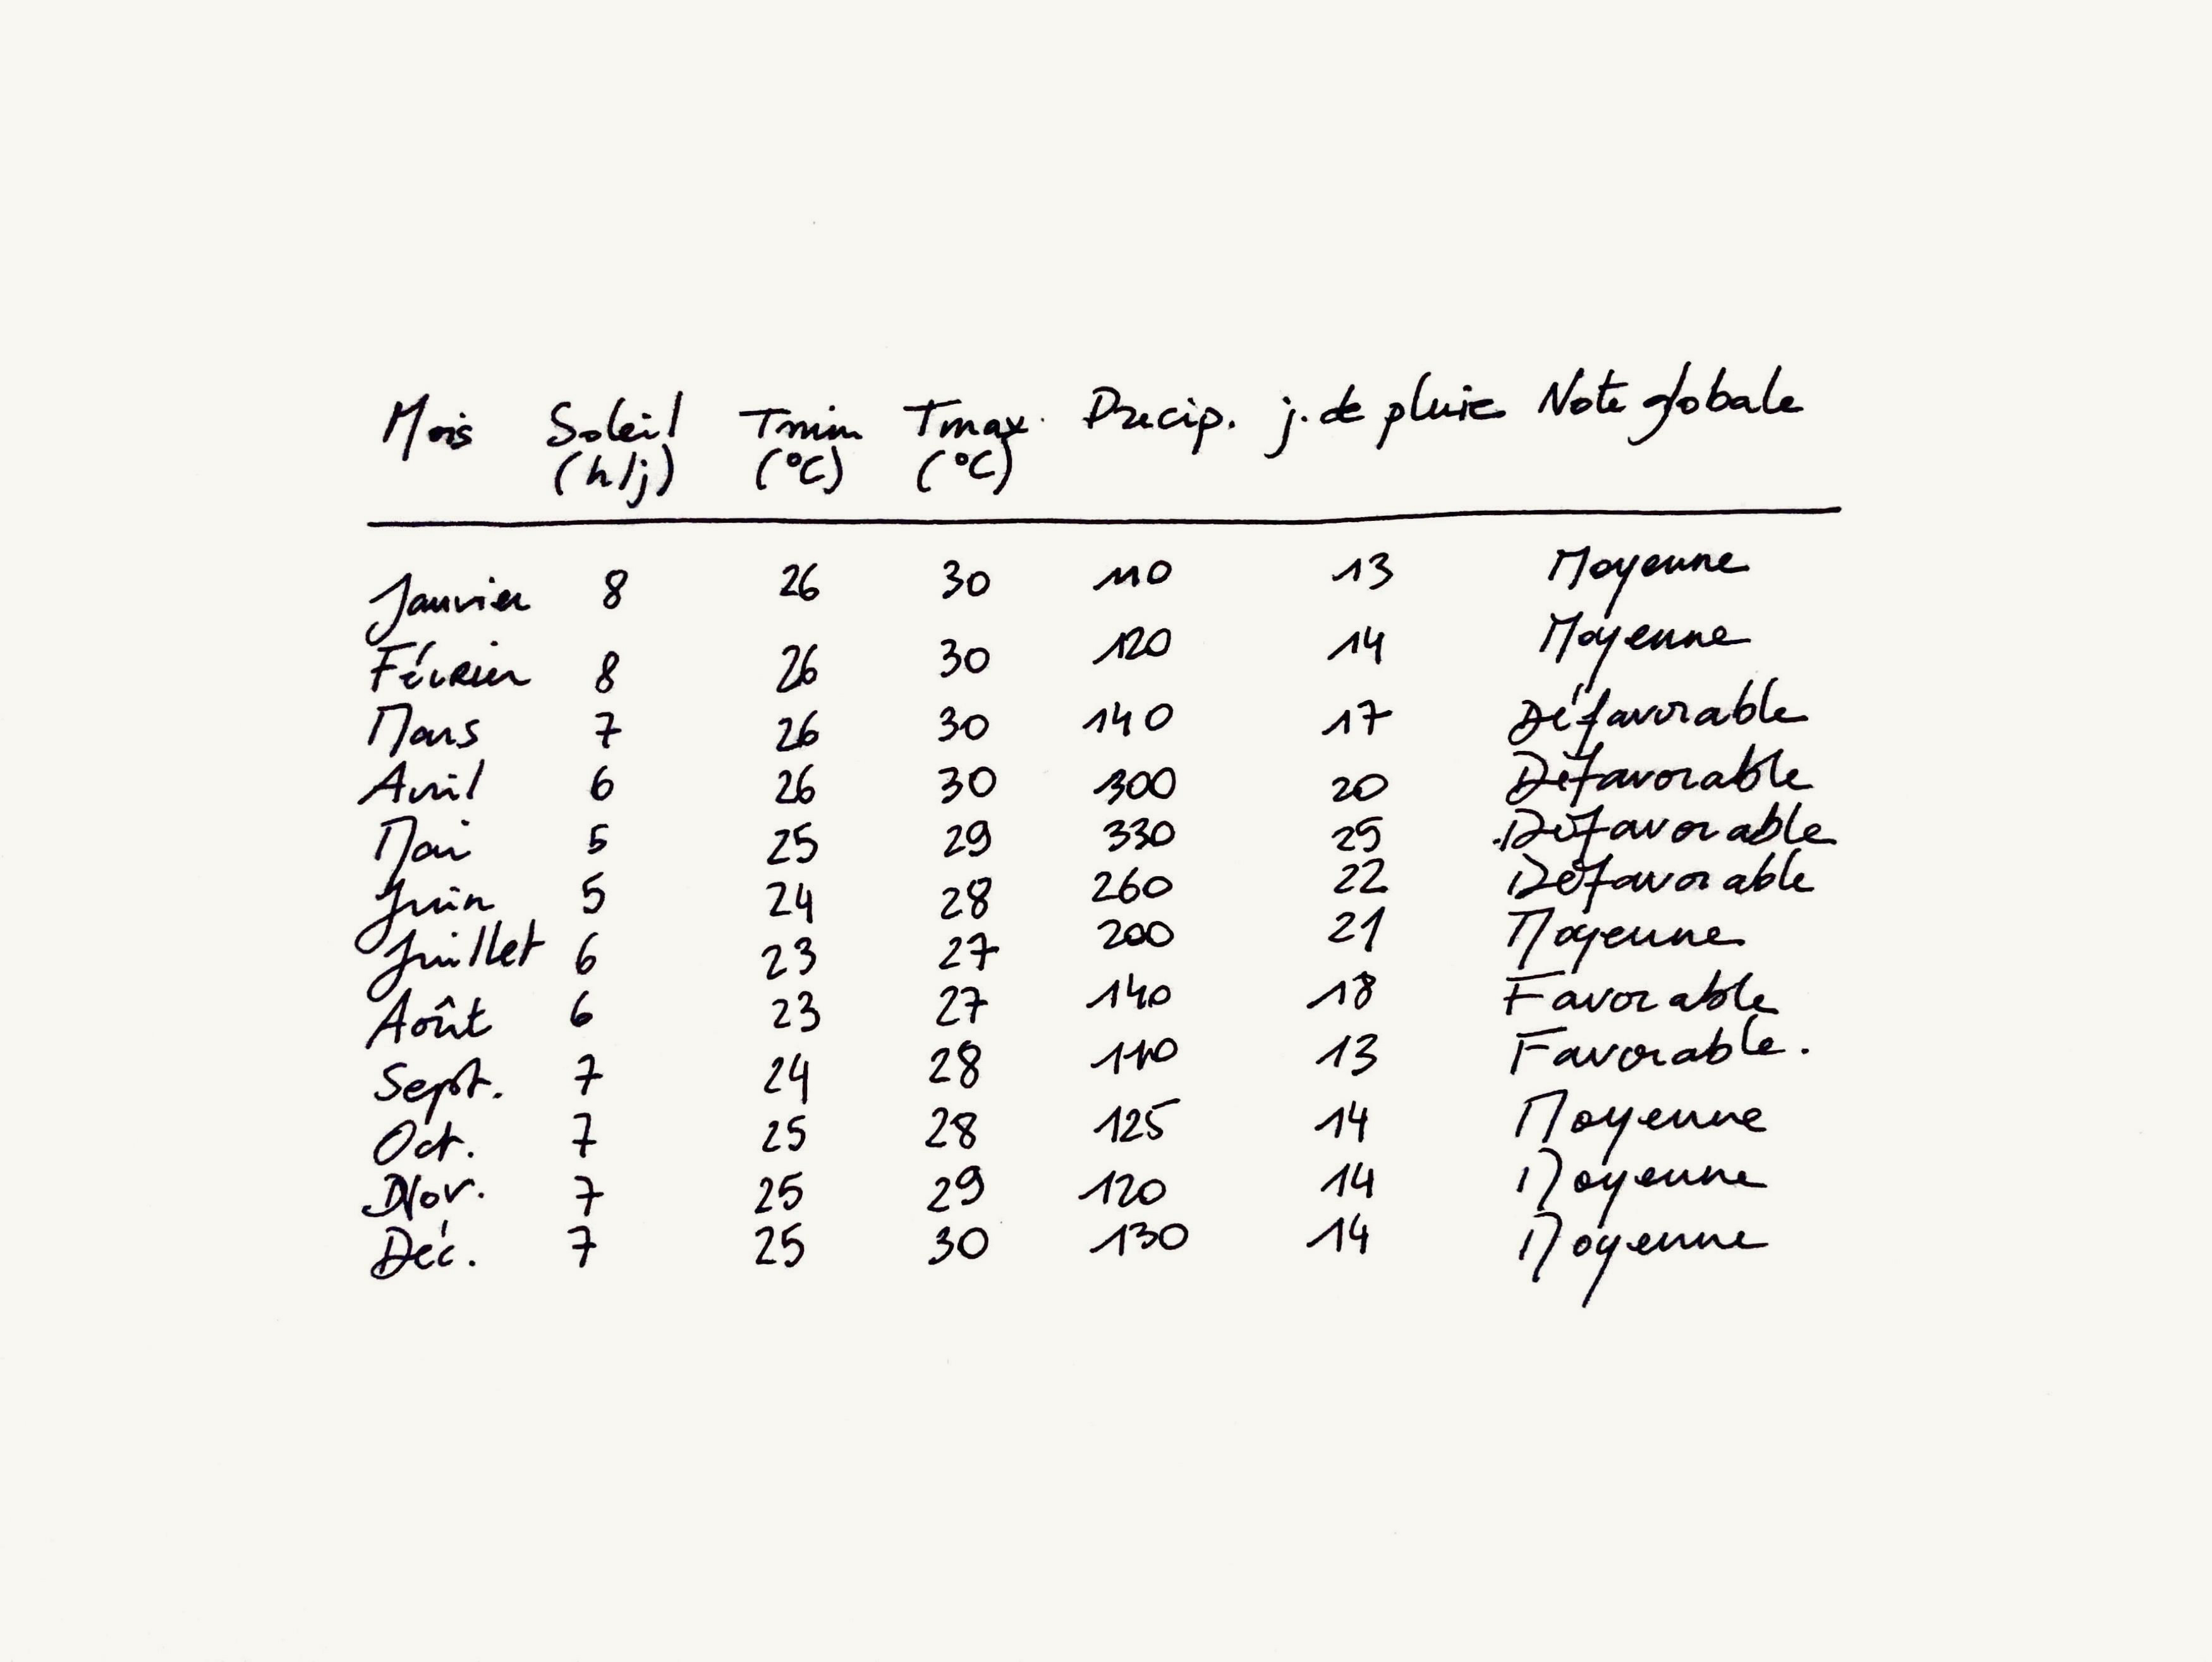 Mois Soleil Tmin Tmax. Precip. j. de pluie Note globale
(h/j) (°C) (°C)
Janvier 8 26 30 110 13 Moyenne
Février 8 26 30 120 14 Moyenne
Mars 7 26 30 140 17 Défavorable
Avril 6 26 30 300 20 Défavorable
Mai 5 25 29 330 25 Défavorable
Juin 5 24 28 260 22 Défavorable
Juillet 6 23 27 200 21 Moyenne
Août 6 23 27 140 18 Favorable
Sept. 7 24 28 110 13 Favorable.
Oct. 7 25 28 125 14 Moyenne
Nov. 7 25 29 120 14 Moyenne
Déc. 7 25 30 130 14 Moyenne